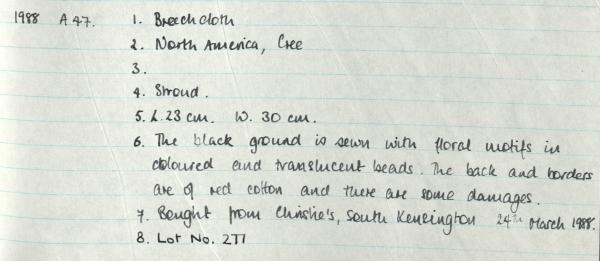 1988 A 47. 1. Breechcloth
2. North America, Cree
3.
4. Stroud.
5. L. 23 cm. W. 30 cm.
6. The black ground is sewn with floral motifs in
coloured and translucent beads. The back and borders
are of red cotton and there are some damages.
7. Bought from Christie's, South Kensington 24th March 1988.
8. Lot No. 277